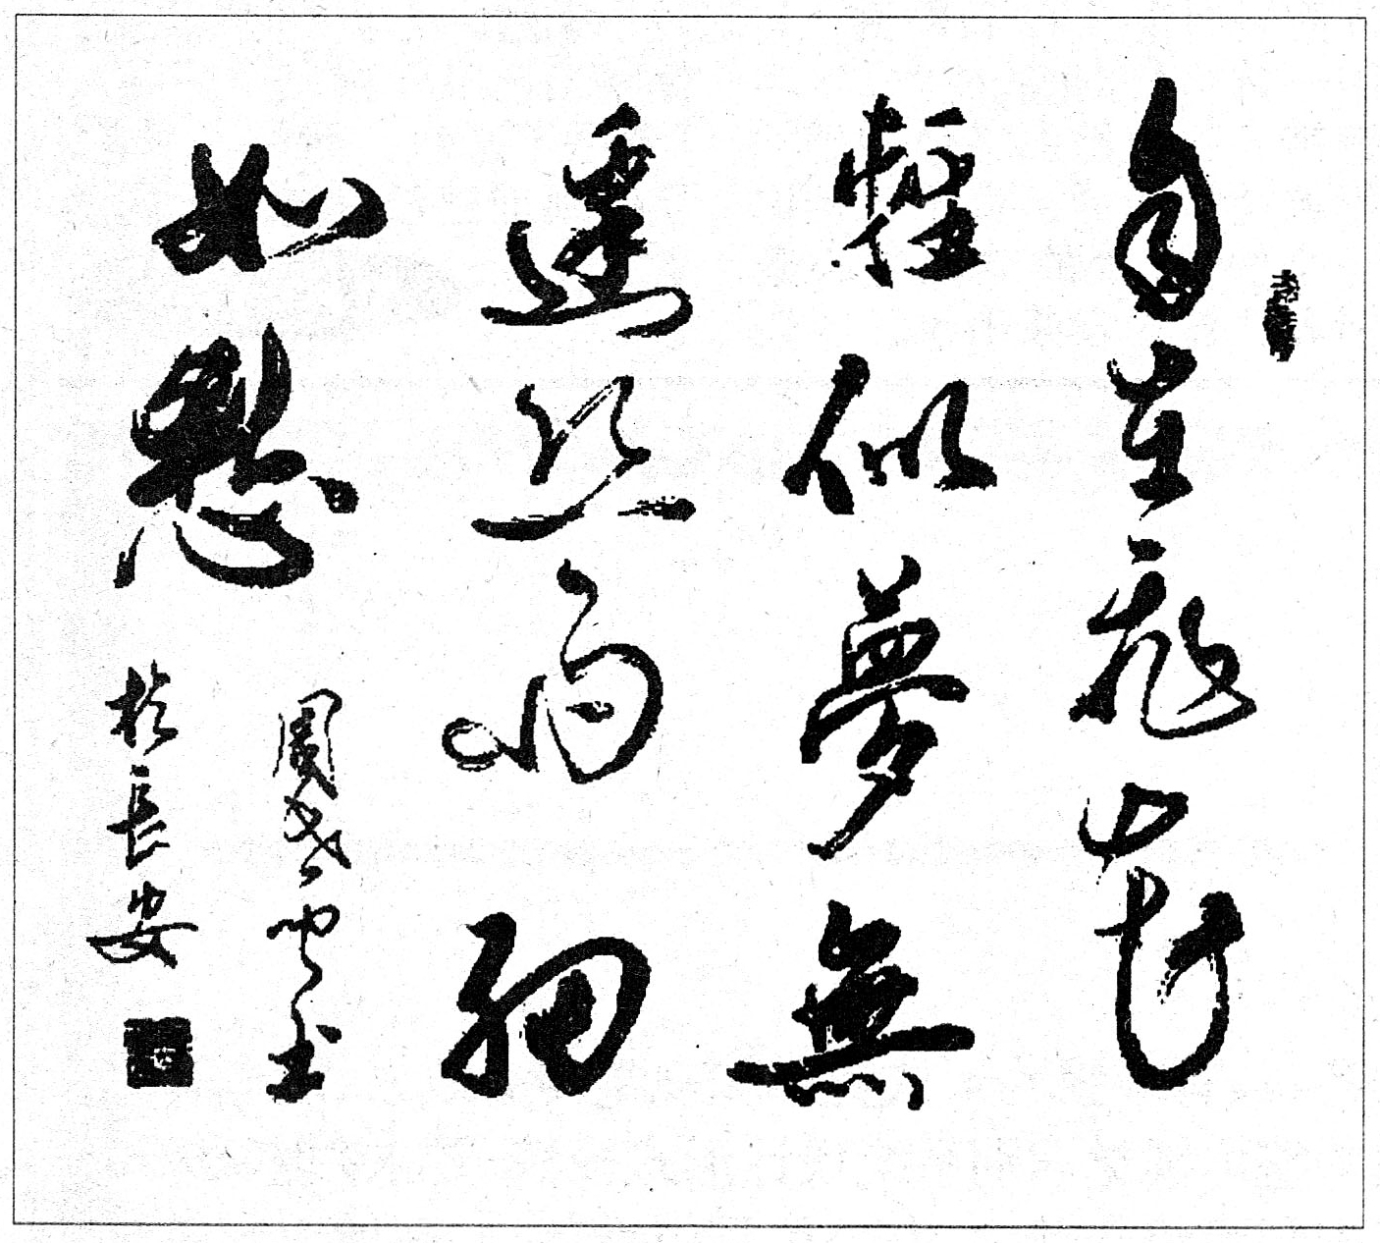 自在飛花
輕似夢無
邊絲雨細
如愁
周書
於長安